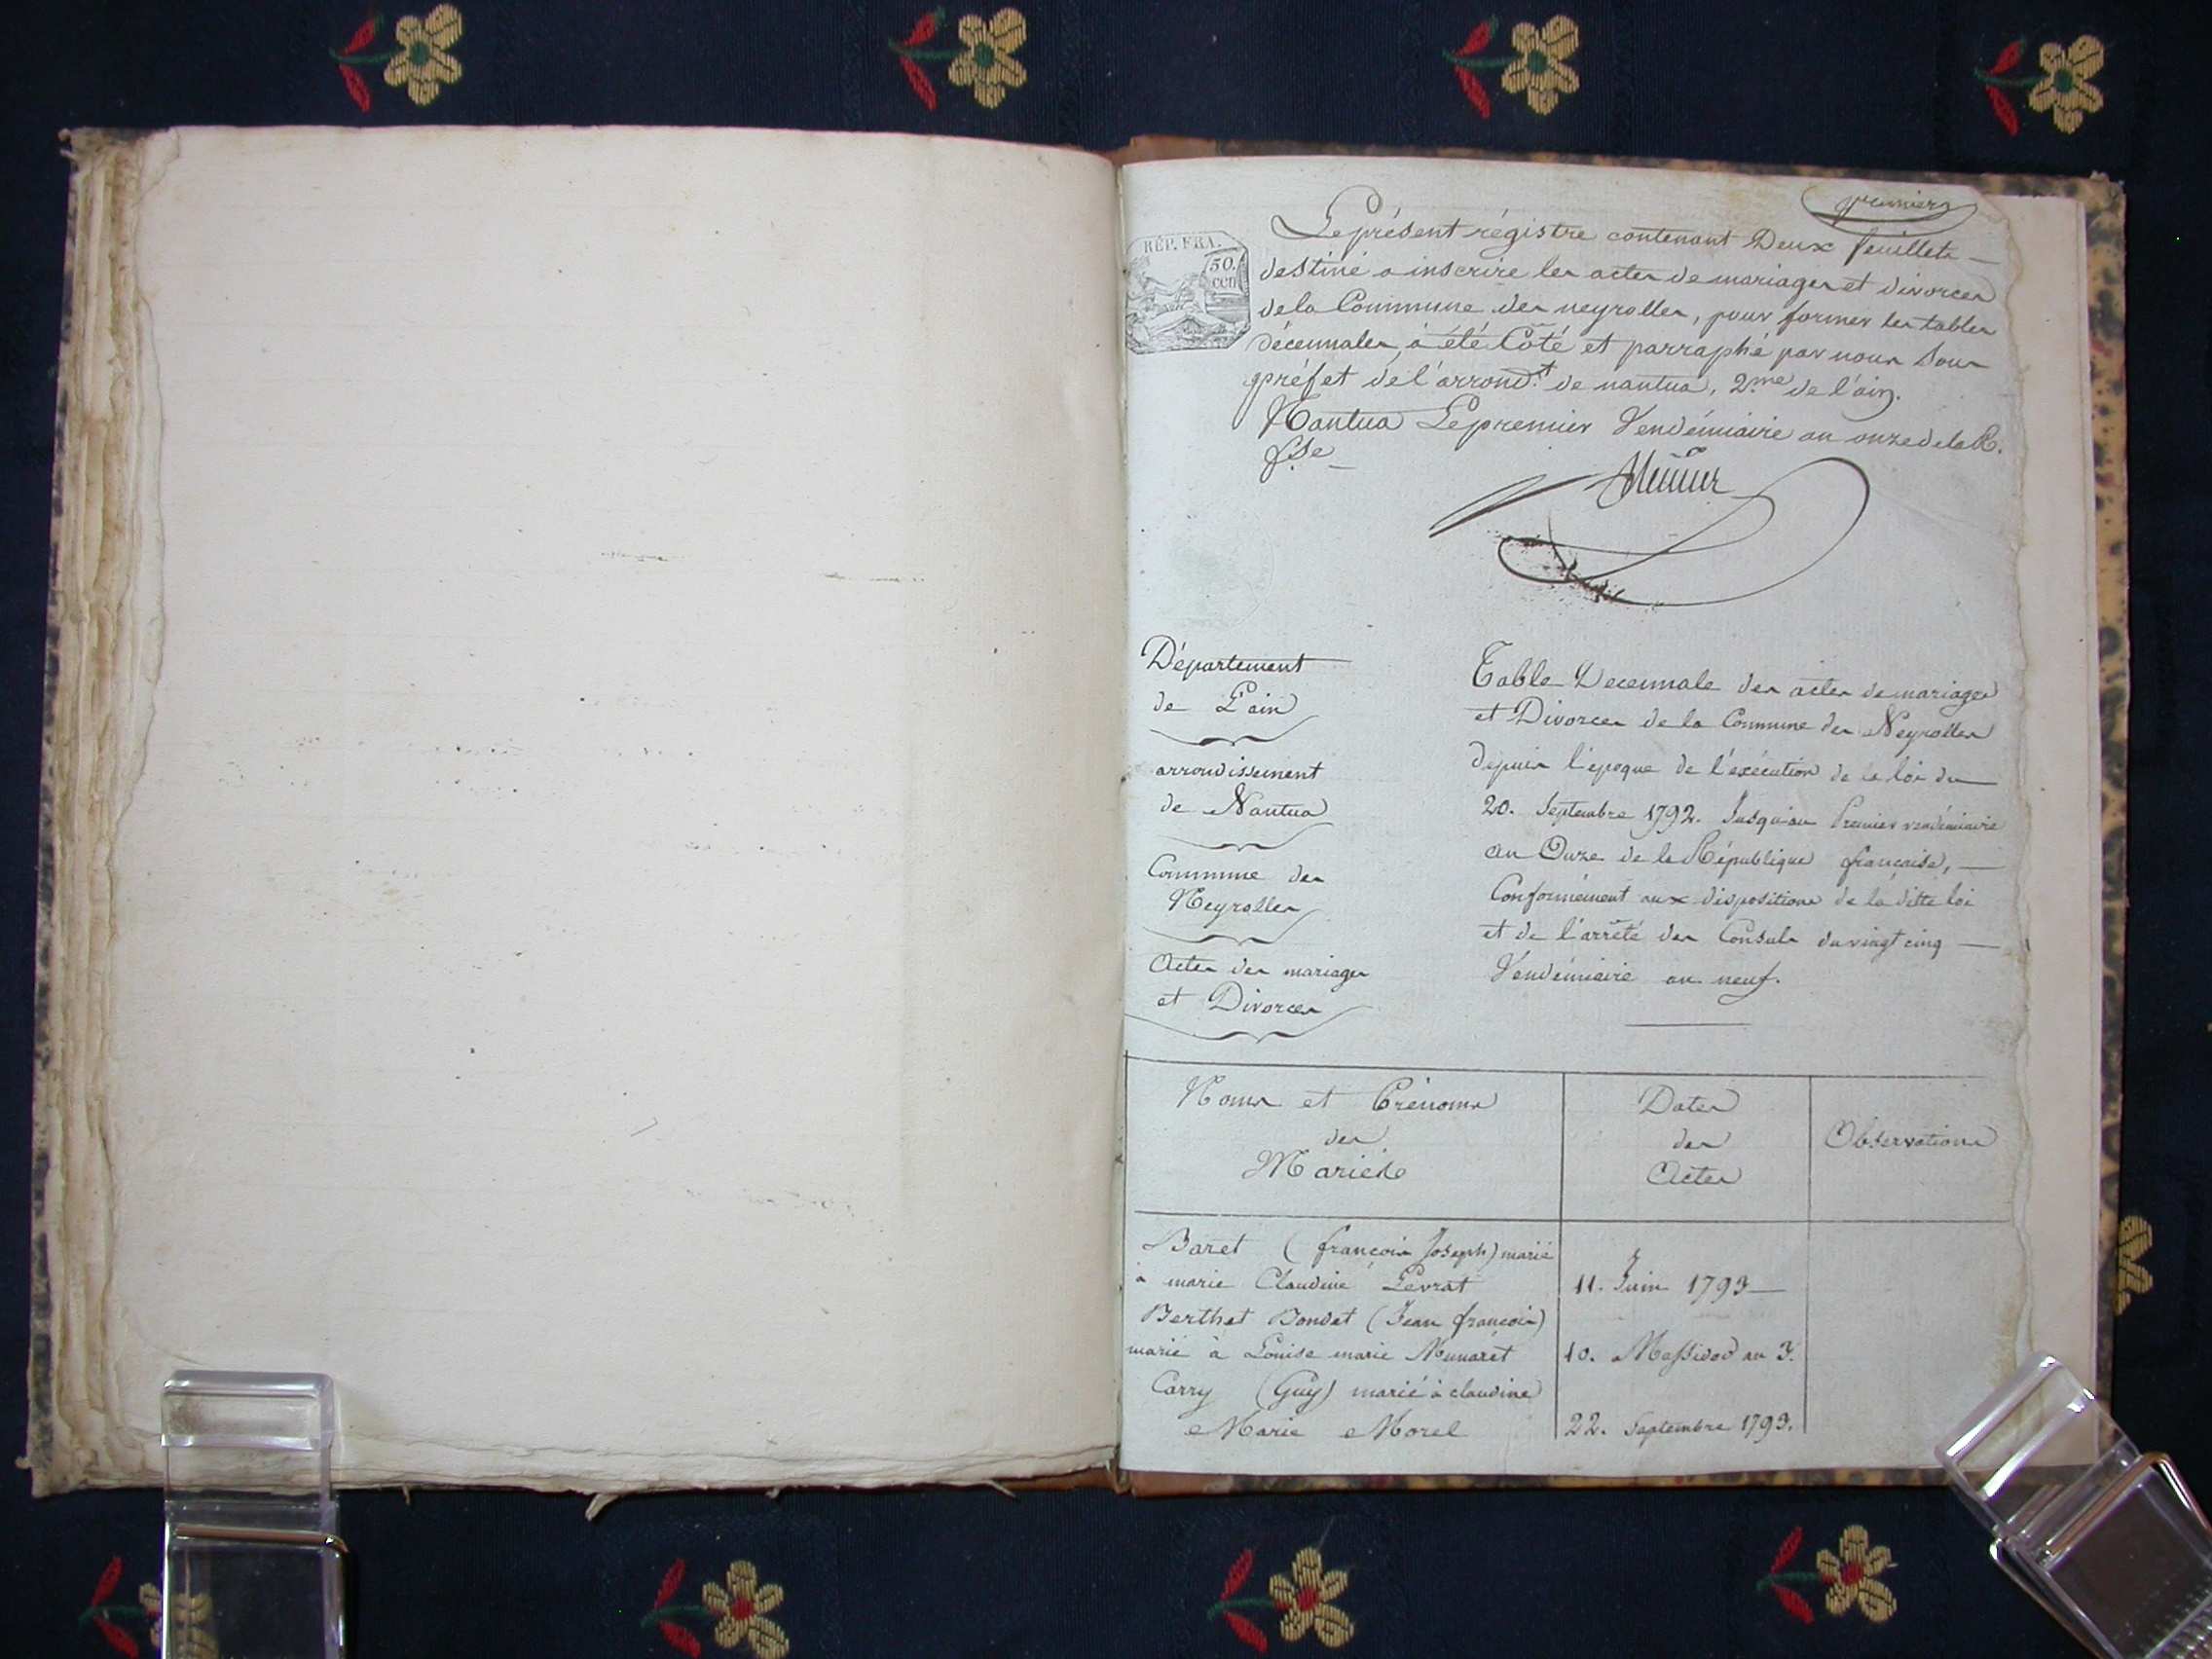 premier
Le présent régistre contenant Deux feuillets
destiné a inscrire les actes de mariages et divorces
de la Commune des neyrolles, pour former les tables
décennales, à été Côté et parraphé par nous Sous
préfet de l'arrond.t de nantua, 2.me de l'ain.
Nantua Le premier Vendémiaire an onze de la R.
f.se
RÉP. FRA.
50.
cen
Département
de L'ain
arrondissement
de Nantua
Commune des
Neyrolles
Actes des mariages
et Divorces
Table Decennale des actes de mariages
et Divorces de la Commune des Neyrolles
depuis l'époque de l'exécution de la loi du
20. Septembre 1792. Jusqu'au Premier vendémiaire
an Onze de la République française,
Conformément aux dispositions de la ditte loi
et de l'arrêté des Consuls du vingt cinq
Vendémiaire an neuf.
Noms et Prénoms
des
Mariés
Dates
des
Actes
Observations
Baret (françois Joseph) marié
à marie Claudine Levrat
11. Juin 1793
Berthet Bondet (Jean françois)
marié à Louise marie Munaret
10. Messidor an 3.
Carry (Guy) marié à claudine
Marie Morel
22. Septembre 1793.